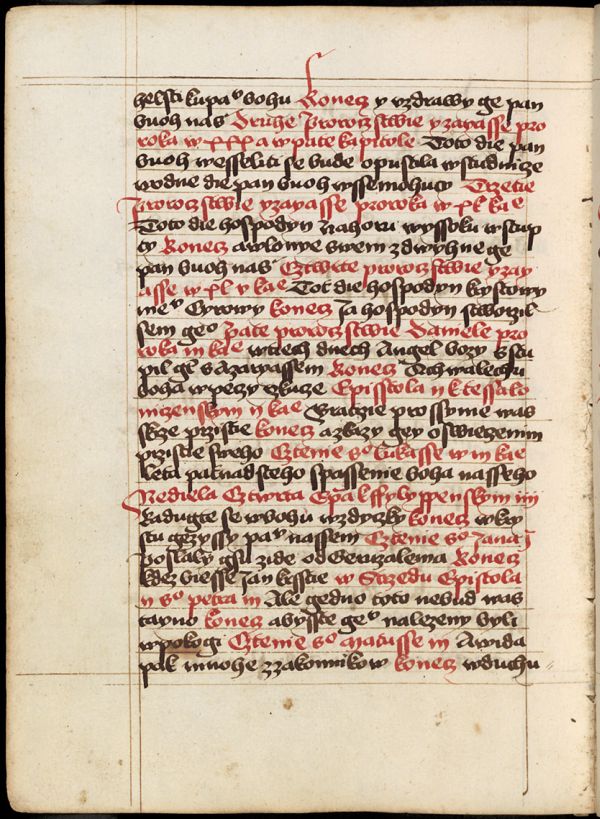 helsti kupaᵛ bohu Konecz y vzdrawy ge pan
buoh nas Druhe Proroczstwie yzayasse pro
roka w xxx a w pate kapitole Toto die pan
buoh wesseliti se bude opustila w studnicze
wodne die pan buoh wssemohucy Trzetie
Proroczstwie yzayasse proroka w xl kaᵉ
Toto die hospodyn Nahoru wyssoku wstup
ty Konecz a wlonye swem zdwyhne ge
pan buoh nas Cztwrte proroczstwie yzay
asse w xl v kaᵉ Tot die hospodyn krystowy
meᵛ Cyrowy konecz Ja hospodyn stworzil
sem geᵒ Pate proroczstwie Daniele pro
roka in kaᵉ w tiech dnech Angel bozy sstu
pil gl s Azarpassem Konecz Tech walechu
boha w peczy rzkucze Episstola n k tessalo
niczenskym n kaᵉ Bratrzie prossyme was
skrze przistie konecz a zkazy gey oswieczenim
przistie sweho Cztenie sᵒ lukasse w in kaᵉ
leta patnadsteho spassenie boha nasseho
Nediela Cztwrta Epᵃ k ffylyppenskym iiij
Radugte se w bohu wzdyczky konecz w kry
stu gezyssy paᵛ nassem Cztenie sᵒ Jana j
Poslaly gsu zide od Geruzalema Konecz
kdez biesse Jan krstie w Strzedu Epistola
n sᵒ petra in Ale gedno toto nebud was
tayno konecz abysste geᵛ nalezeny byli
w pokogi Cztenie sᵒ Matusse in A wida
pak mnohe z zakonnikow konecz w duchu